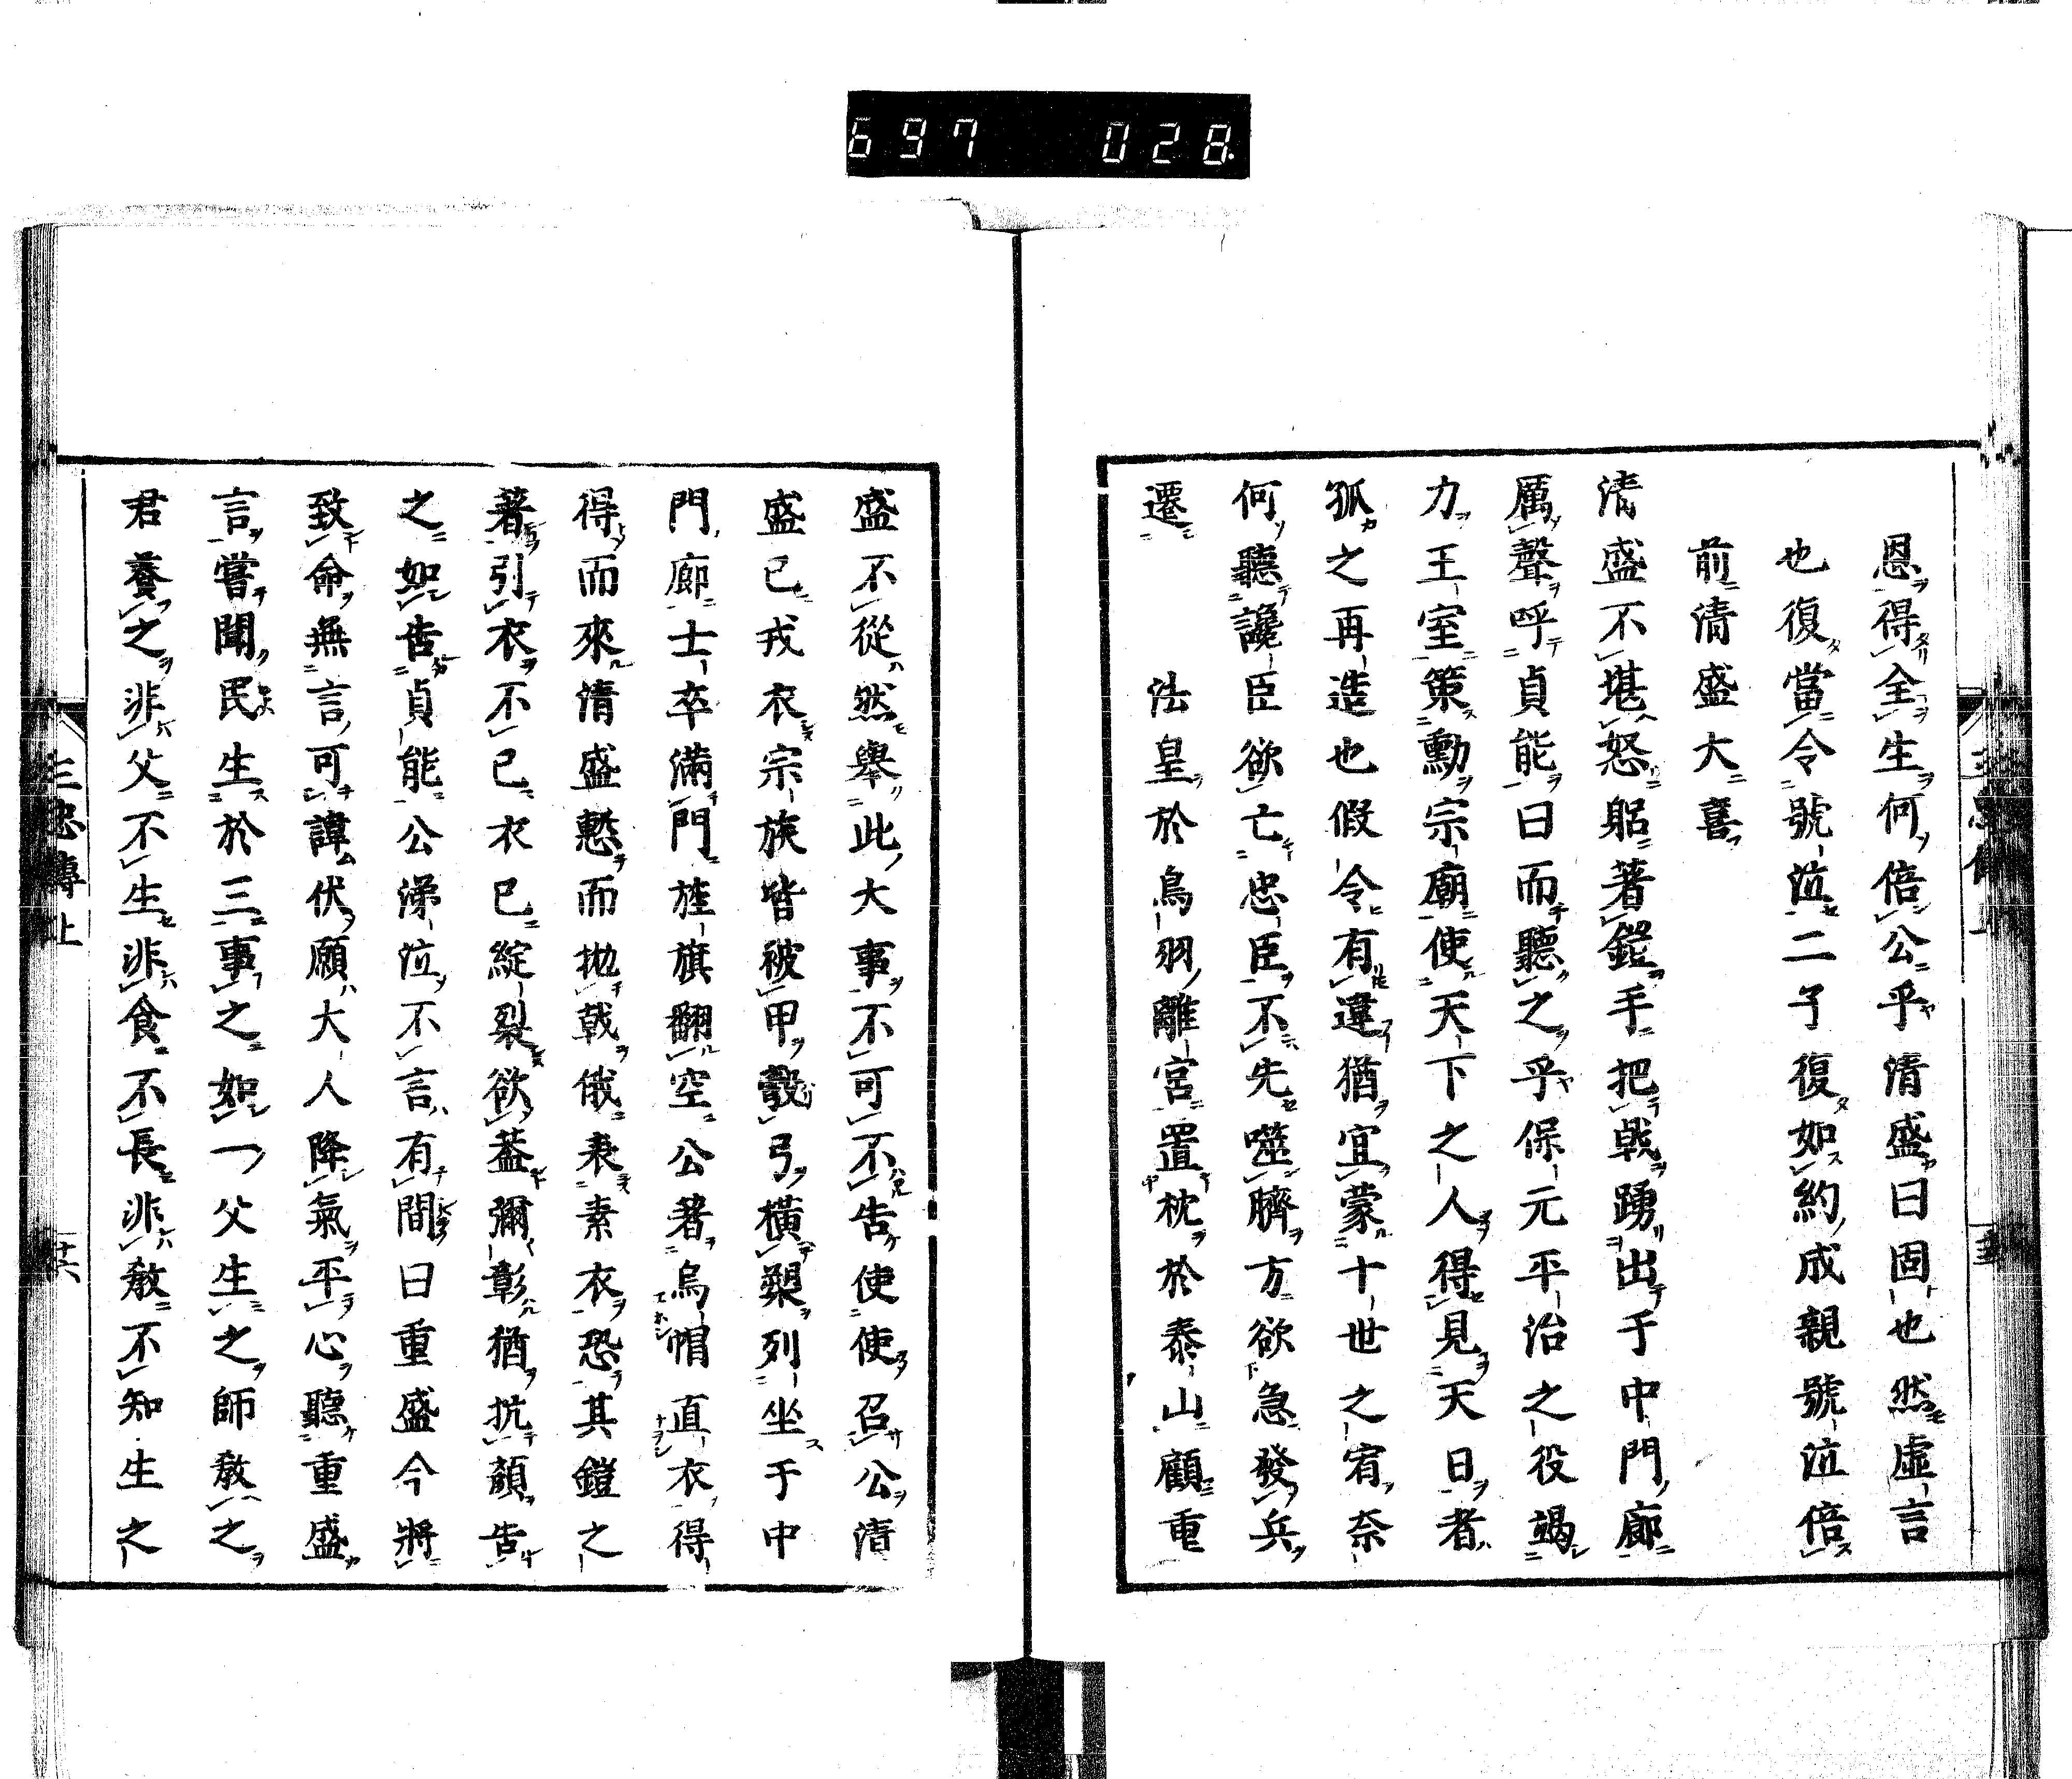 697 028
恩得全生何倍公乎清盛曰固也然虛言
也復當令號泣二子復如約成親號泣倍
前清盛大喜
清盛不堪怒躬著鎧手把戟踴出于中門廊
厲聲呼貞能曰而聽之乎保元平治之役竭
力王室策勳宗廟使天下之人得見天日者
孤之再造也假令有違猶宜蒙十世之宥奈
何聽讒臣欲亡忠臣不先噬臍方欲急發兵
遷　法皇於鳥羽離宮置枕於泰山顧重
盛不從然舉此大事不可不告使使召公清
盛已戎衣宗族皆被甲彀弓橫槊列坐于中
門廊士卒滿門旌旗翻空公著烏帽直衣得
得而來清盛慙而抛戟俄表素衣恐其鎧之
著引衣不已衣已綻裂欲蓋彌彰猶抗顏告
之如告貞能公涕泣不言有間曰重盛今將
致命無言可諱伏願大人降氣平心聽重盛
言嘗聞民生於三事之如一父生之師教之
君養之非父不生非食不長非教不知生之
三忠傳上
廿六